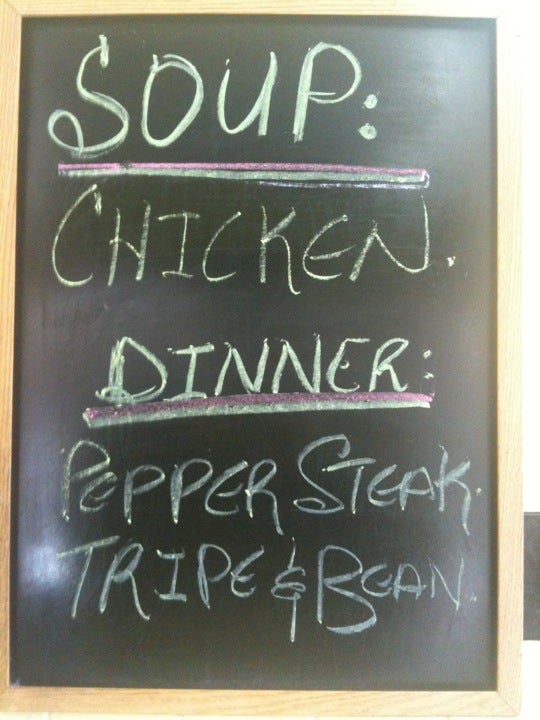 SOUP:
CHICKEN.
DINNER:
PEPPER STEAK.
TRIPE & BEAN.